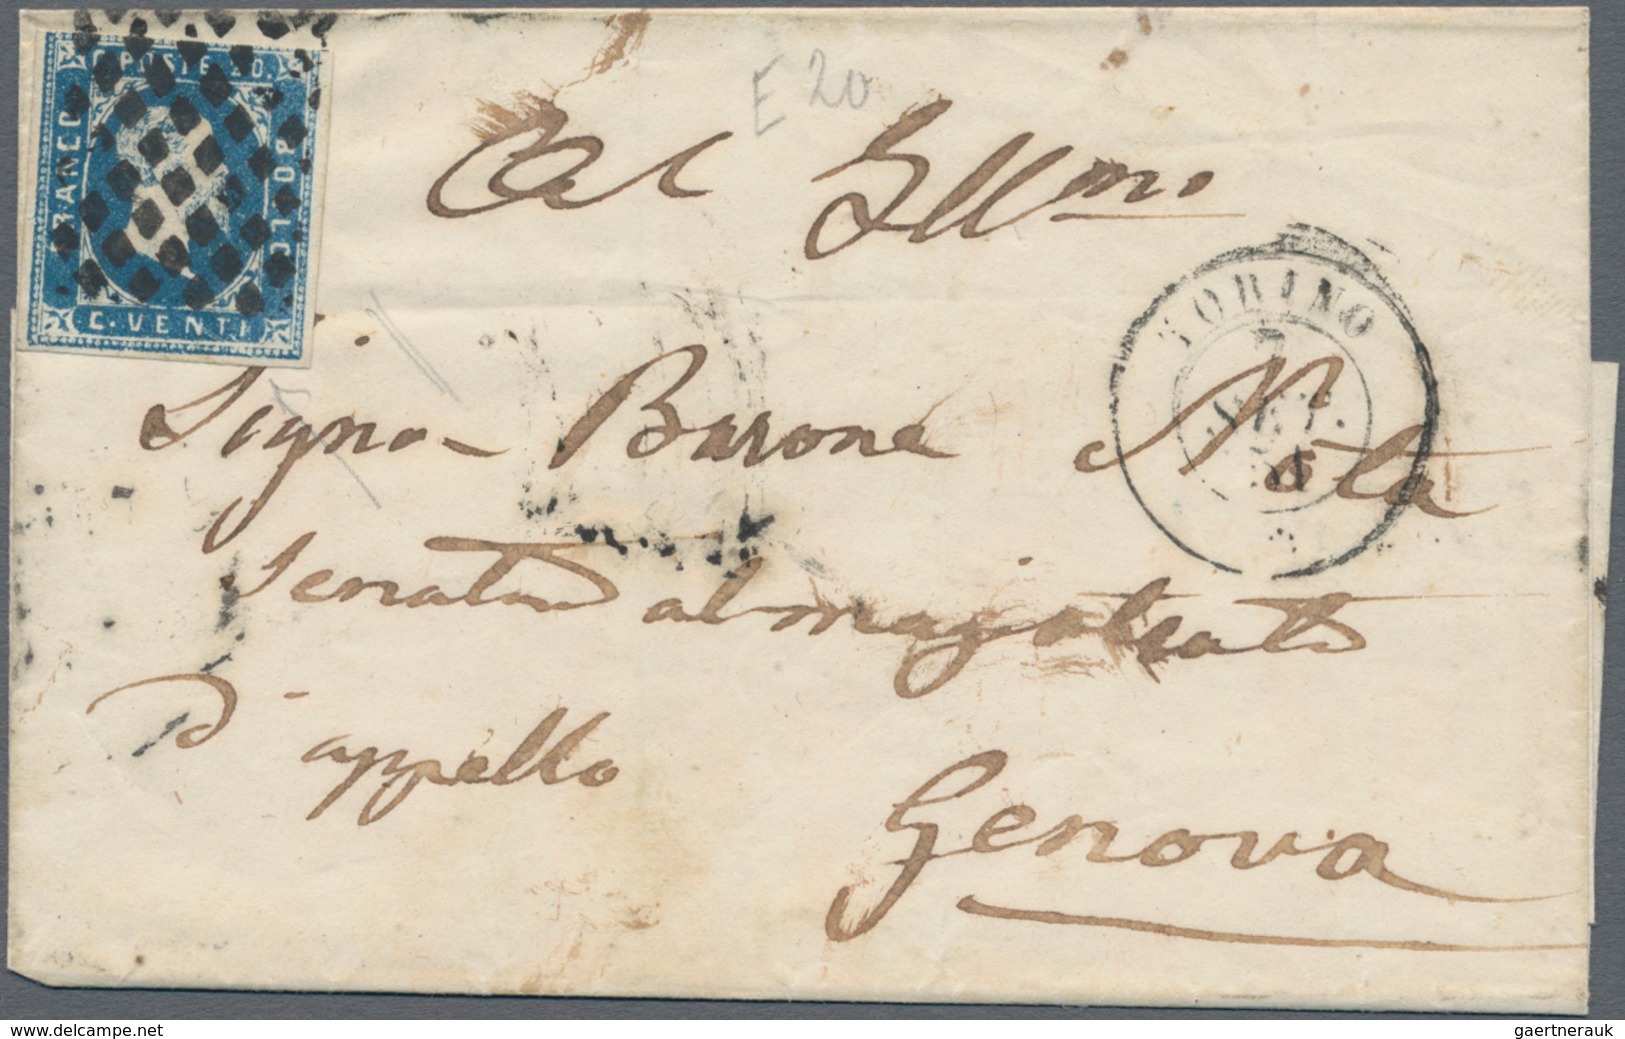 C. POSTE 20.
FRANCO
20 LLOB
C. VENTI
E 20
Al Illmo
TORINO
7
SET.
Signor Barone Nota
Senatore al magistrato
D'appello
Genova
www.delcampe.net
gaertnerauk